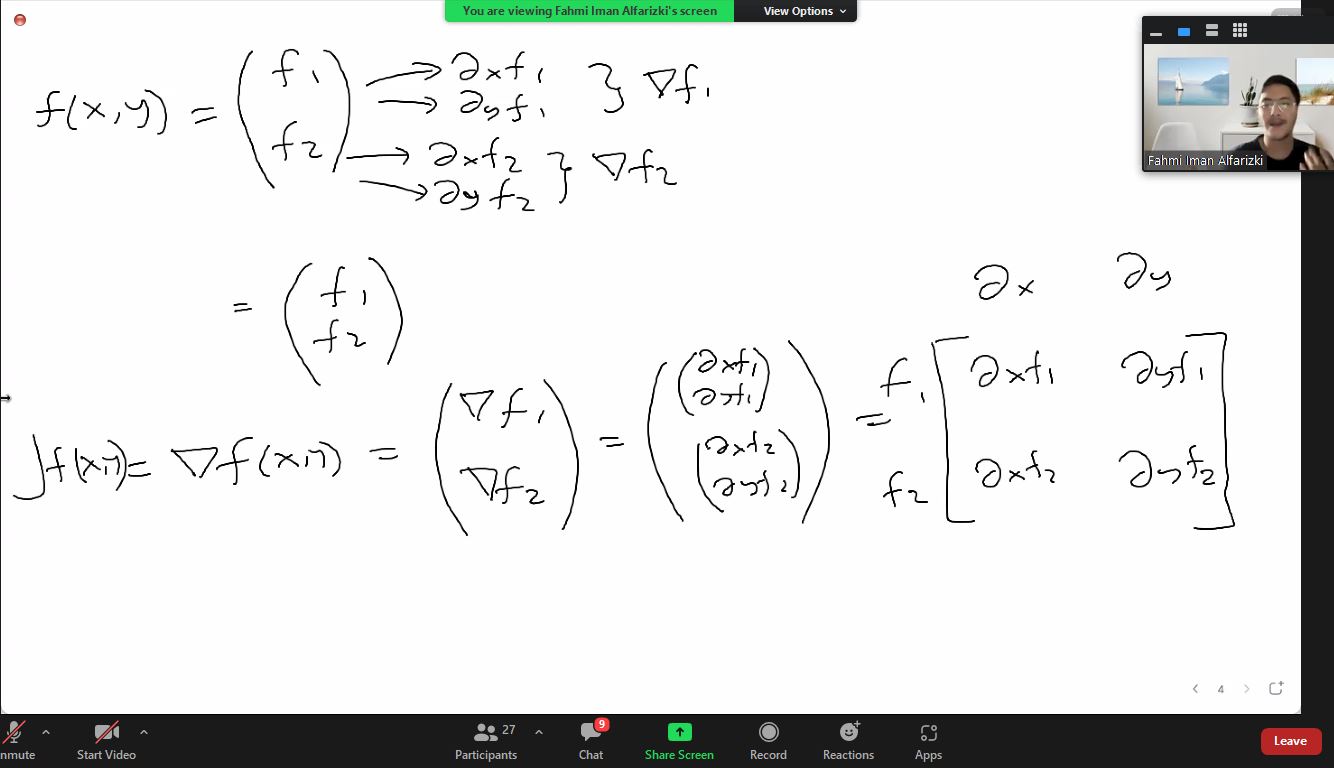 You are viewing Fahmi Iman Alfarizki's screen
View Options
Fahmi Iman Alfarizki
f(x,y) = (f1 f2)
→ ∂xf1
→ ∂yf1 } ∇f1
→ ∂xf2
→ ∂yf2 } ∇f2
= (f1 f2)
∂x ∂y
Jf(x,y) = ∇f(x,y) = (∇f1 ∇f2) = ((∂xf1 ∂yf1) (∂xf2 ∂yf2)) =
f1 [∂xf1 ∂yf1
f2 ∂xf2 ∂yf2]
< 4 >
nmute
Start Video
Participants 27
Chat 9
Share Screen
Record
Reactions
Apps
Leave